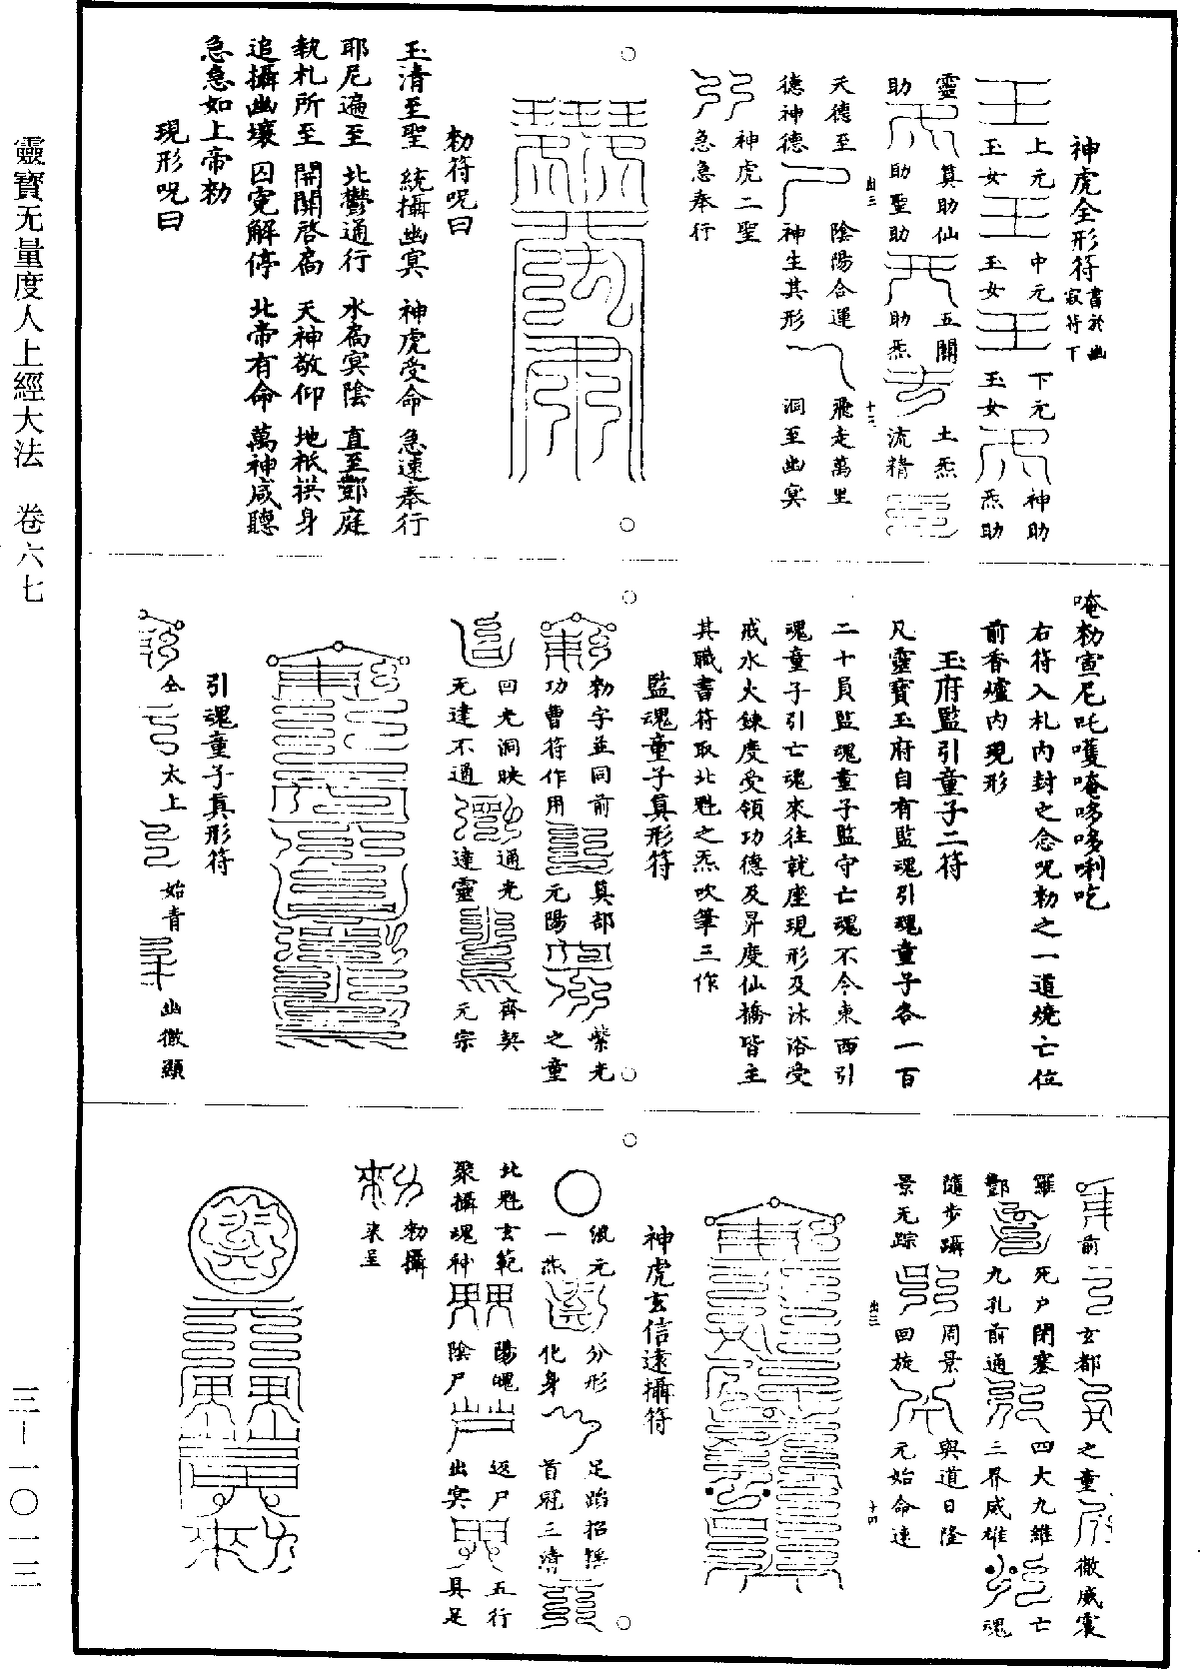 靈寶无量度人上經大法　卷六七
三—一〇一三
神虎全形符書於幽寂符下
上元玉女
中元玉女
下元玉女
神助
炁助
靈
助
真助仙
助聖助
五關
助炁
土炁
流精
天德至
德神德
陰陽合運
神生其形
飛走萬里
洞至幽冥
神虎二聖
急急奉行
勑符呪曰
玉清至聖　統攝幽冥　神虎受命　急速奉行
耶尼遍至　北酆通行　水扃冥陰　直至酆庭
執札所至　開開啓扃　天神敬仰　地祇拱身
追攝幽壤　囚寃解停　北帝有命　萬神咸聽
急急如上帝勑
現形呪曰
唵勑宣尼吒嚄唵哆哆唎吃
右符入札內封之念呪勑之一道燒亡位
前香爐內現形
玉府監引童子二符
凡靈寶玉府自有監魂引魂童子各一百
二十員監魂童子監守亡魂不令東西引
魂童子引亡魂來往就座現形及沐浴受
戒水火鍊度受領功德及昇度仙橋皆主
其職書符取北魁之炁吹筆三作
監魂童子真形符
勑字並同前
功曹符作用
真部
元陽
紫光
之童
回光洞映
无達不通
通光
達靈
齊契
元宗
引魂童子真形符
全
太上
始青
幽微顯
前
玄都
之童
徹威震
羅
酆
死戶閉塞
九孔前通
四大九維
三界咸雄
亡
魂
隨步躡
景无踪
周景
回旋
與道日隆
元始命速
神虎玄信遠攝符
混元
一炁
分形
化身
足蹈招搖
首冠三清
北魁玄範
聚攝魂神
陽魄
陰尸
返尸
出冥
五行
具足
勑攝
來呈